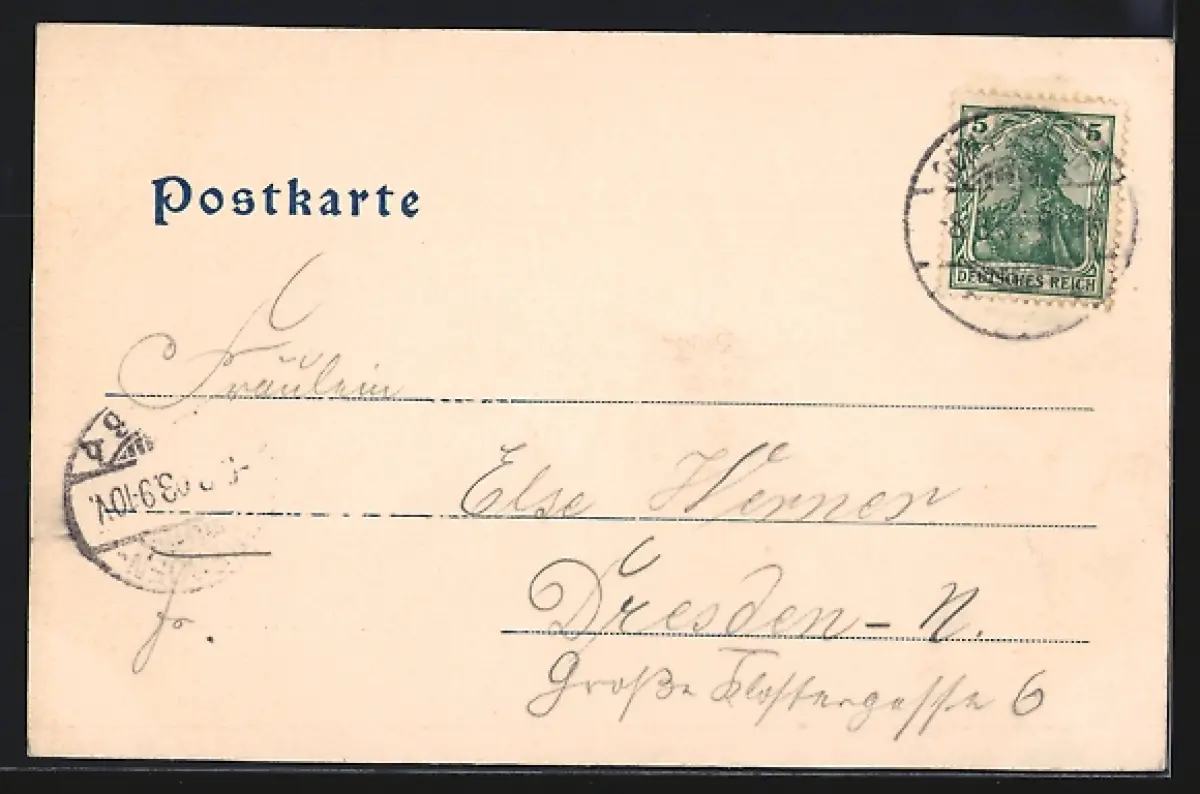 Postkarte
5 5
DEUTSCHES REICH
Fräulein
Else Werner
Dresden - N.
Große Klostergasse 6
fr.
9-10V.